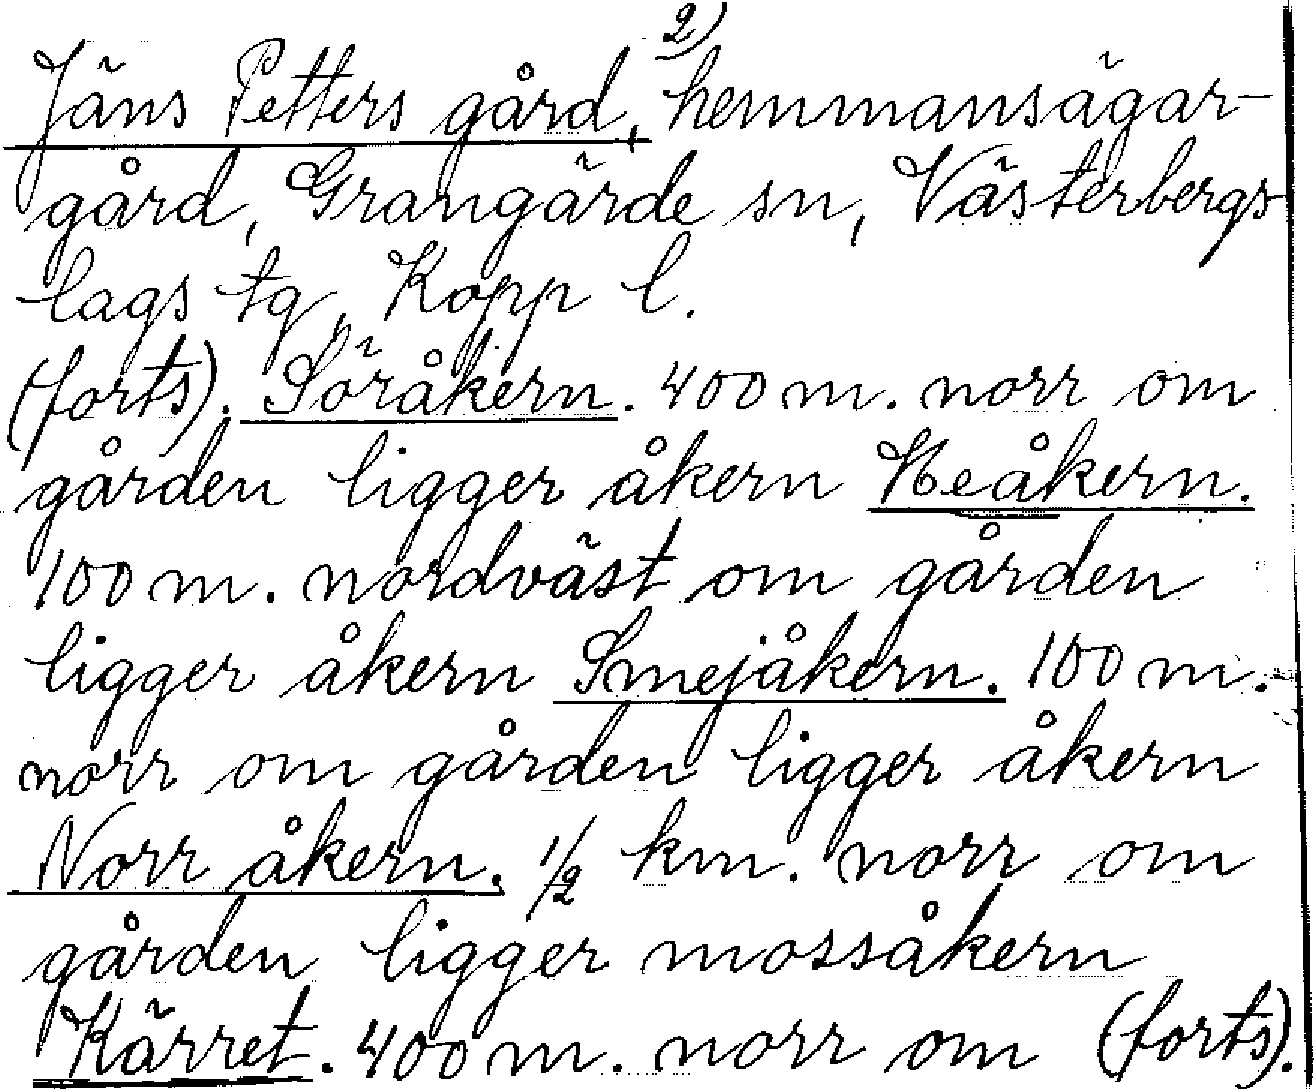 2)
Jäns Petters gård, hemmansägar-
gård, Grangärde sn, Västerbergs-
lags tg, Kopp l.
(forts). Söråkern. 400 m. norr om
gården ligger åkern Heåkern.
100 m. nordväst om gården
ligger åkern Smejåkern. 100 m.
norr om gården ligger åkern
Norr åkern. 1/2 km. norr om
gården ligger mossåkern
Kärret. 400 m. norr om (forts).